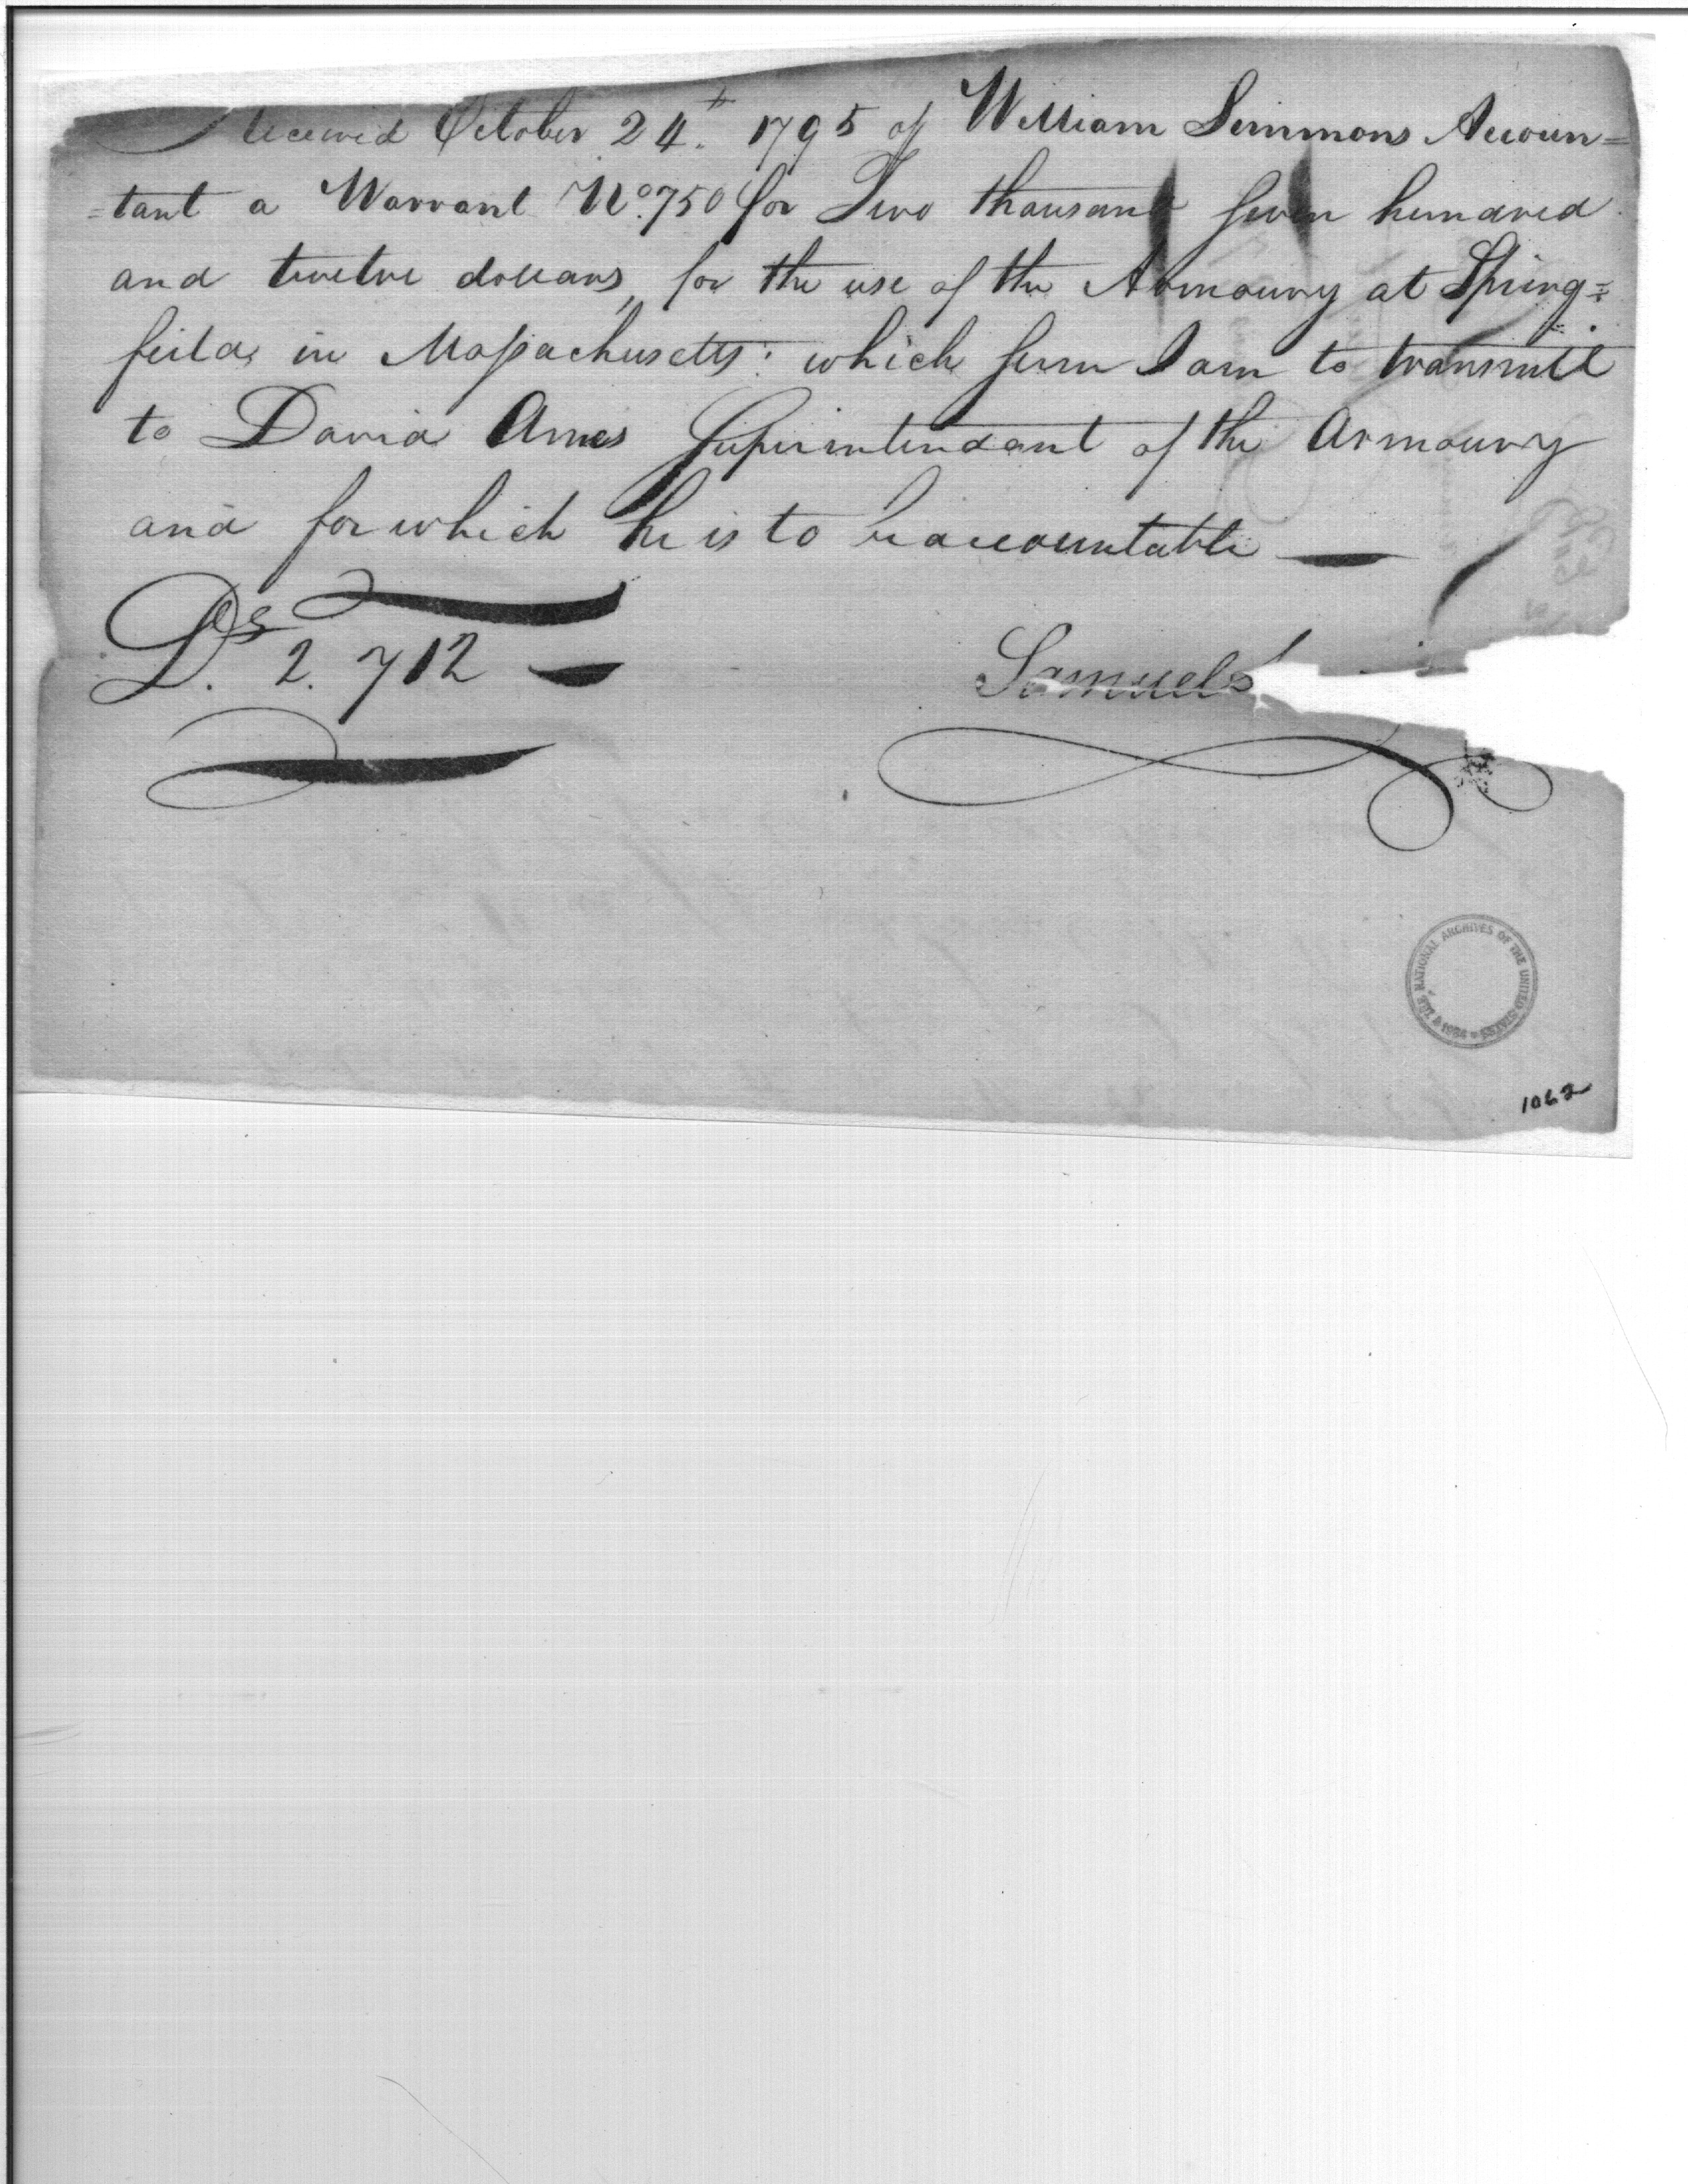 Received October 24th. 1795 of William Simmons Accoun=
=tant a Warrant No. 750 for Two thousand seven hundred
and twelve dollars, for the use of the Armoury at Spring=
feild, in Massachusetts: which sum I am to transmitt
to David Ames Superintendant of the Armoury
and for which he is to be accountable
Ds. 2.712
Samuel
THE NATIONAL ARCHIVES OF THE UNITED STATES
1062